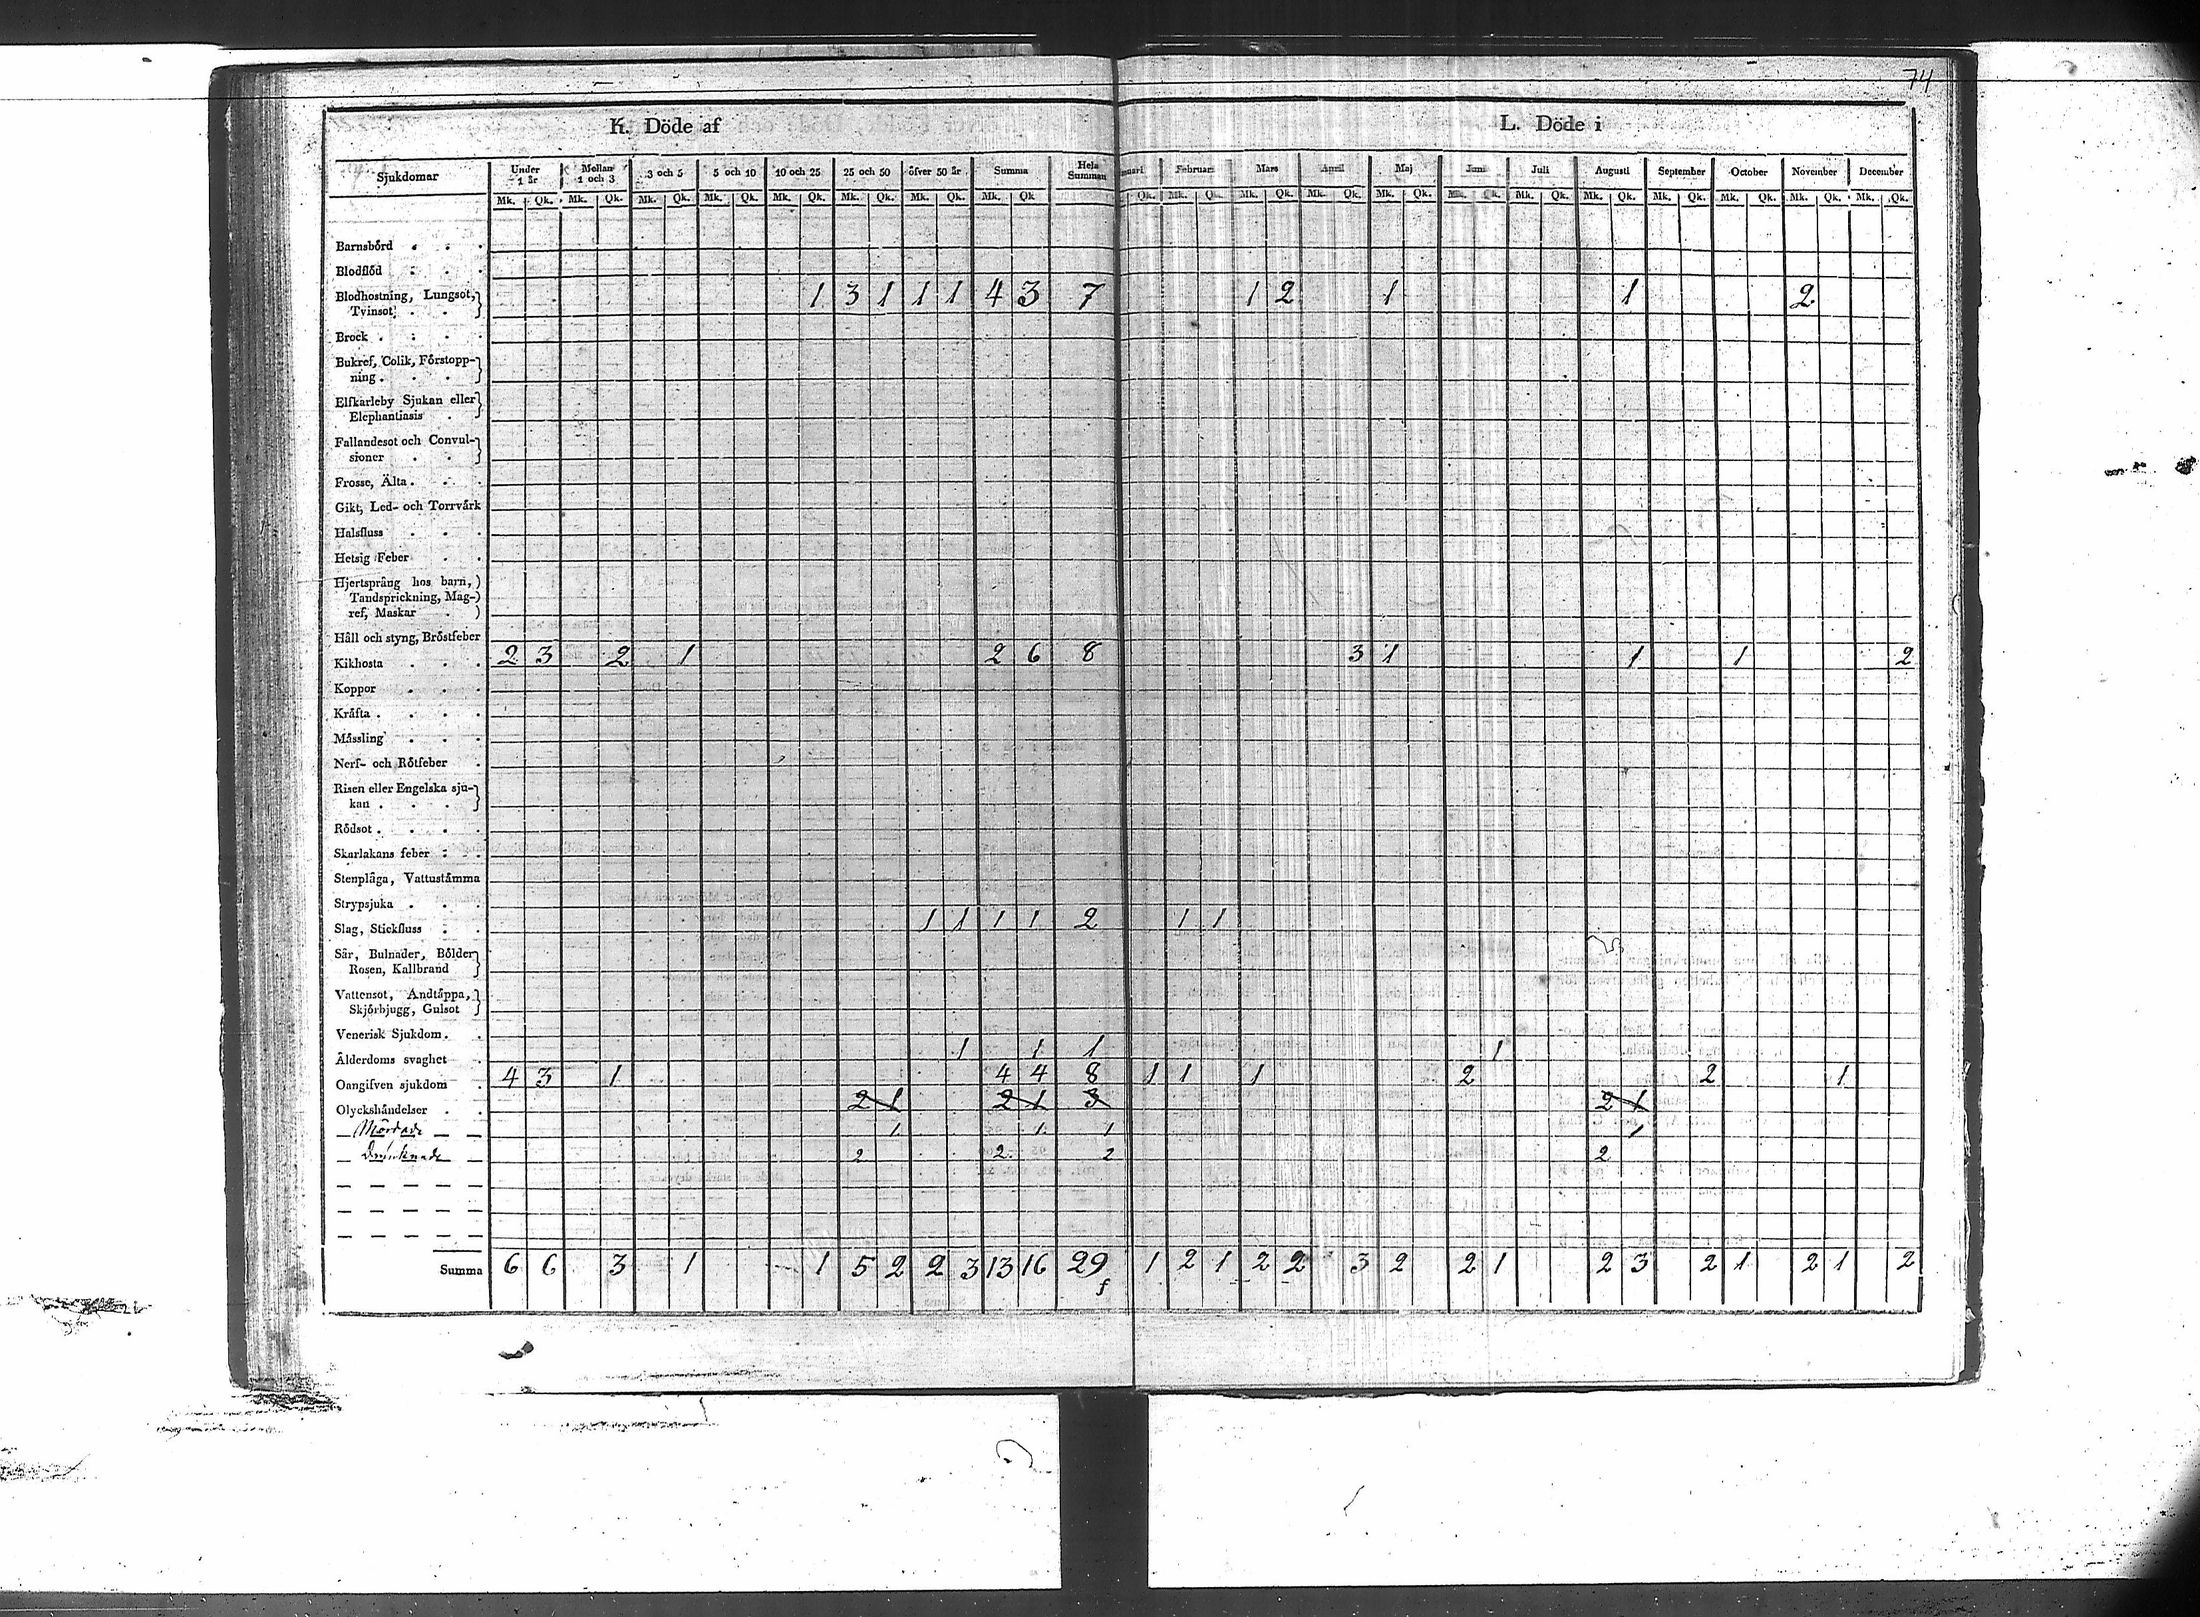 74
K. Döde af L. Döde i
Sjukdomar Under 1 år Mellan 1 och 3 3 och 5 5 och 10 10 och 25 25 och 50 öfver 50 år Summa Hela Summan Februari Mars April Maj Juni Juli Augusti September October November December
Mk. Qk. Mk. Qk. Mk. Qk. Mk. Qk. Mk. Qk. Mk. Qk. Mk. Qk. Mk. Qk. Qk. Mk. Qk. Mk. Qk. Mk. Qk. Mk. Qk. Mk. Qk. Mk. Qk. Mk. Qk. Mk. Qk. Mk. Qk. Mk. Qk. Mk. Qk.
Barnsbörd
Blodflöd
Blodhostning, Lungsot, 1 3 1 1 1 4 3 7 1 2 1 1 2
Tvinsot
Brock
Bukref, Colik, Förstopp-
ning
Elfkarleby Sjukan eller
Elephantiasis
Fallandesot och Convul-
sioner
Frosse, Älta
Gikt, Led- och Torrvärk
Halsfluss
Hetsig Feber
Hjertsprång hos barn,
Tandsprickning, Mag-
ref, Maskar
Håll och styng, Bröstfeber
Kikhosta 2 3 2 1 2 6 8 3 1 1 1 2
Koppor
Kräfta
Mässling
Nerf- och Rötfeber
Risen eller Engelska sju-
kan
Rödsot
Skarlakans feber
Stenplåga, Vattustämma
Strypsjuka
Slag, Stickfluss 1 1 1 1 2 1 1
Sår, Bulnader, Bölder
Rosen, Kallbrand
Vattensot, Andtäppa,
Skjörbjugg, Gulsot
Venerisk Sjukdom
Ålderdoms svaghet 1 1 1 1
Oangifven sjukdom 4 3 1 4 4 8 1 1 1 2 2 1
Olyckshändelser 2 1 2 1 3 2 1
Mördade 1 1 1 1
Drunknade 2 2 2 2
Summa 6 6 3 1 1 5 2 2 3 13 16 29 1 2 1 2 2 3 2 2 1 2 3 2 1 2 1 2